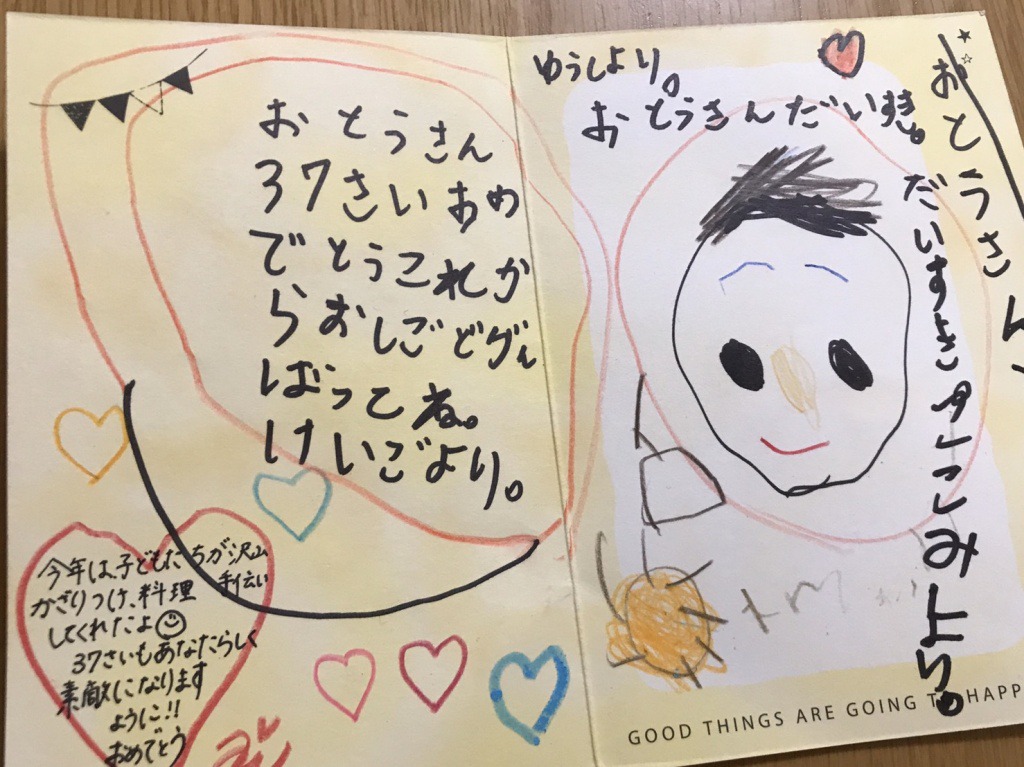 おとうさん
37さいおめ
でとうこれか
らおしごどグん
ばってね。
けいごより。
今年は、子どもたちが沢山
かざりつけ、料理 手伝い
してくれたよ
37さいもあなたらしく
素敵になります
ように!!
おめでとう
ゆうしより。
おとうさんだい好。
おとうさん、
だいすきタこみより。
GOOD THINGS ARE GOING TO HAPP